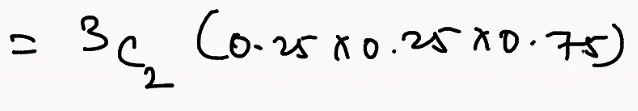 = ³C₂ (0.25 × 0.25 × 0.75)